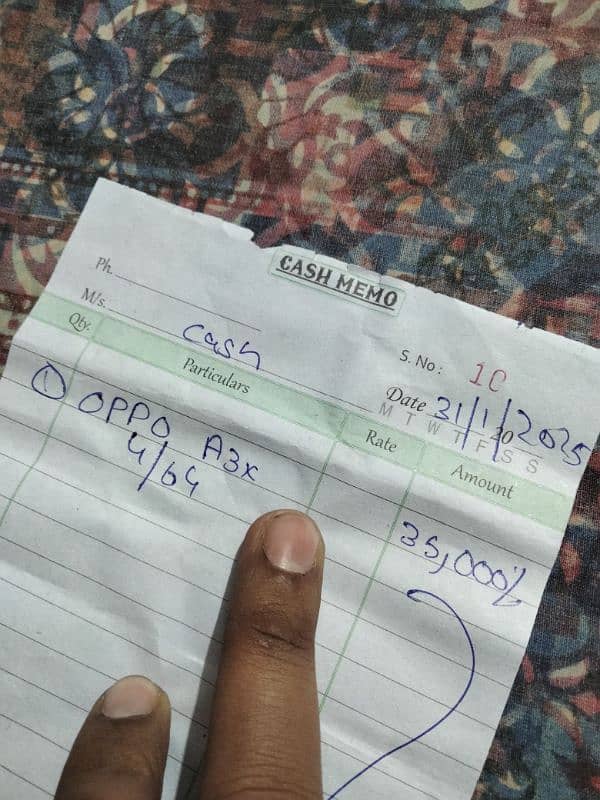 CASH MEMO
Ph.
M/s. cash
S. No: 10
Date 31/1/2025
M T W T F S S
Qty. Particulars Rate Amount
① OPPO A3x 35,000/-
4/64